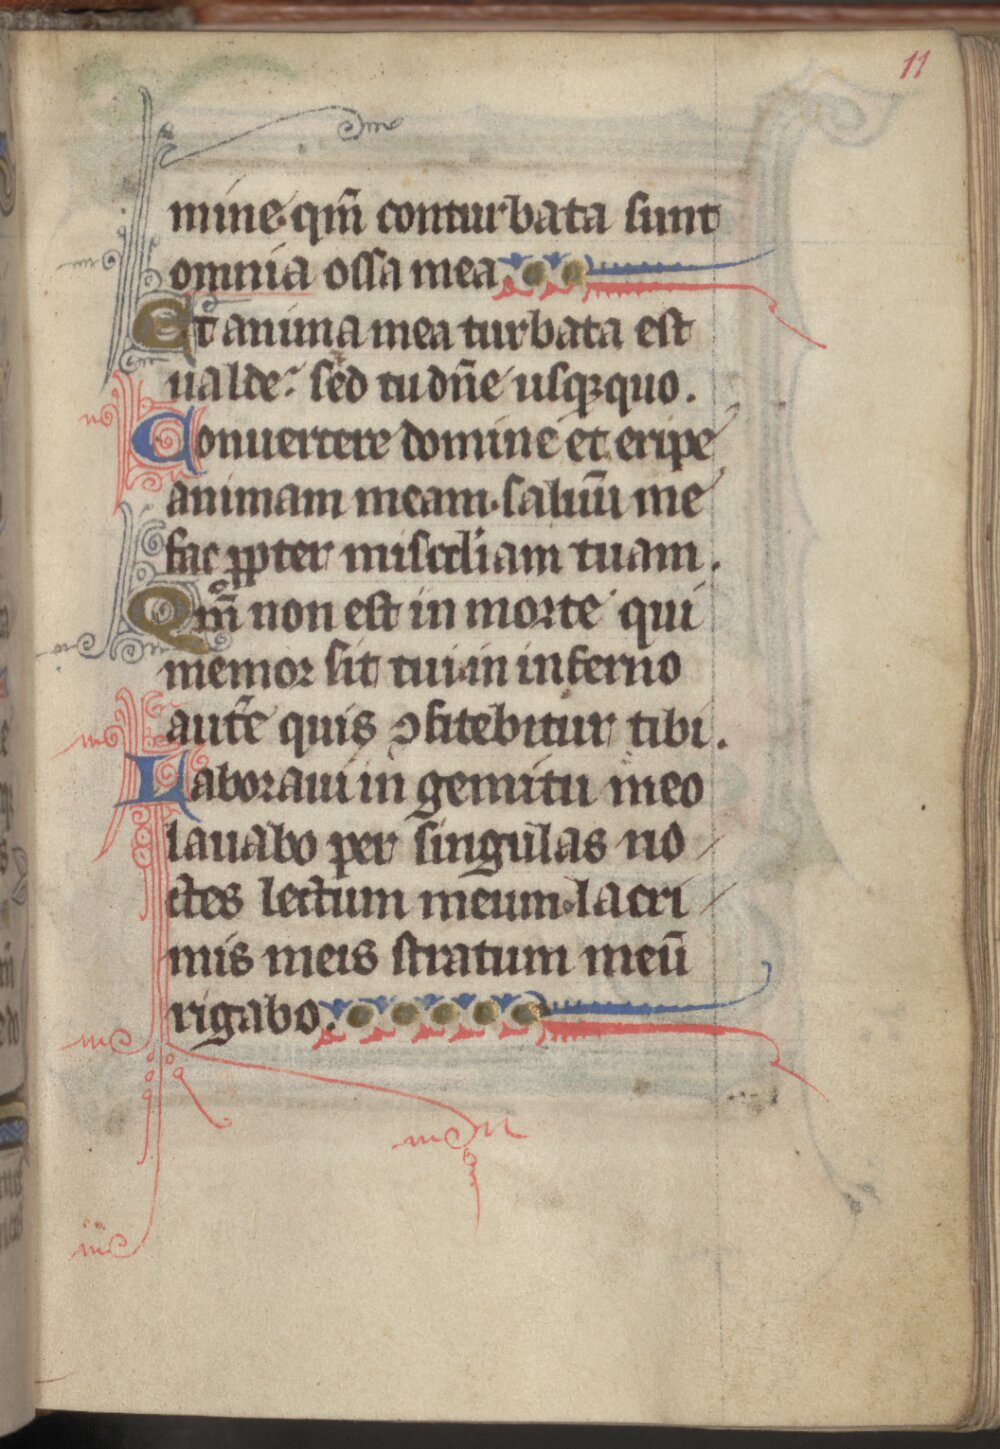 11
mine qm̄ conturbata sunt
omnia ossa mea
Et anima mea turbata est
ualde: sed tu dn̄e usqꝫquo.
Conuertere domine et eripe
animam meam. saluū me
fac ꝓpter miscd̓iam tuam.
Qm̄ non est in morte qui
memor sit tui. in inferno
autē quis ꝯfitebitur tibi.
Laboraui in gemitu meo
lauabo per singulas no
ctes lectum meum. lacri
mis meis stratum meū
rigabo.